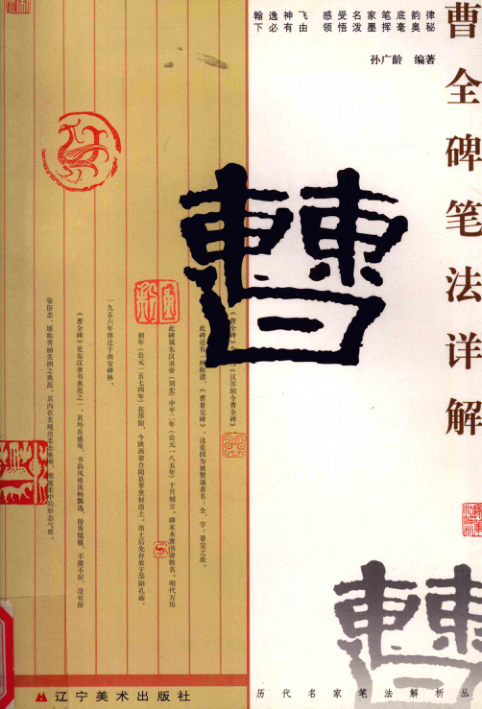 曹全碑笔法详解
翰逸神飞 感受名家笔底韵律
下必有由 领悟泼墨挥毫奥秘
孙广龄 编著
曹
《汉郃阳令曹全碑》
此碑还有一种称谓，《曹景完碑》，这是因为被赞颂者名：全，字，景完之故。
此碑诚东汉灵帝（刘宏）中平二年（公元一八五年）十月制立，碑末未署书者姓名。明代万历
初年（公元一五七四年）在郃阳，今陕西省合阳县莘里村出土，出土后先存放于郃阳孔庙，
一九五六年移迁于西安碑林。
《曹全碑》是东汉隶书典范之一，其外在感观，书韵风格流畅飘逸，俊秀儒雅，不激不厉，没有俗
姿俗态，堪称秀丽类别之典范，其内在表现出柔态焕然，刚寓柔中的形态气质。
曹
辽宁美术出版社
历代名家笔法解析丛